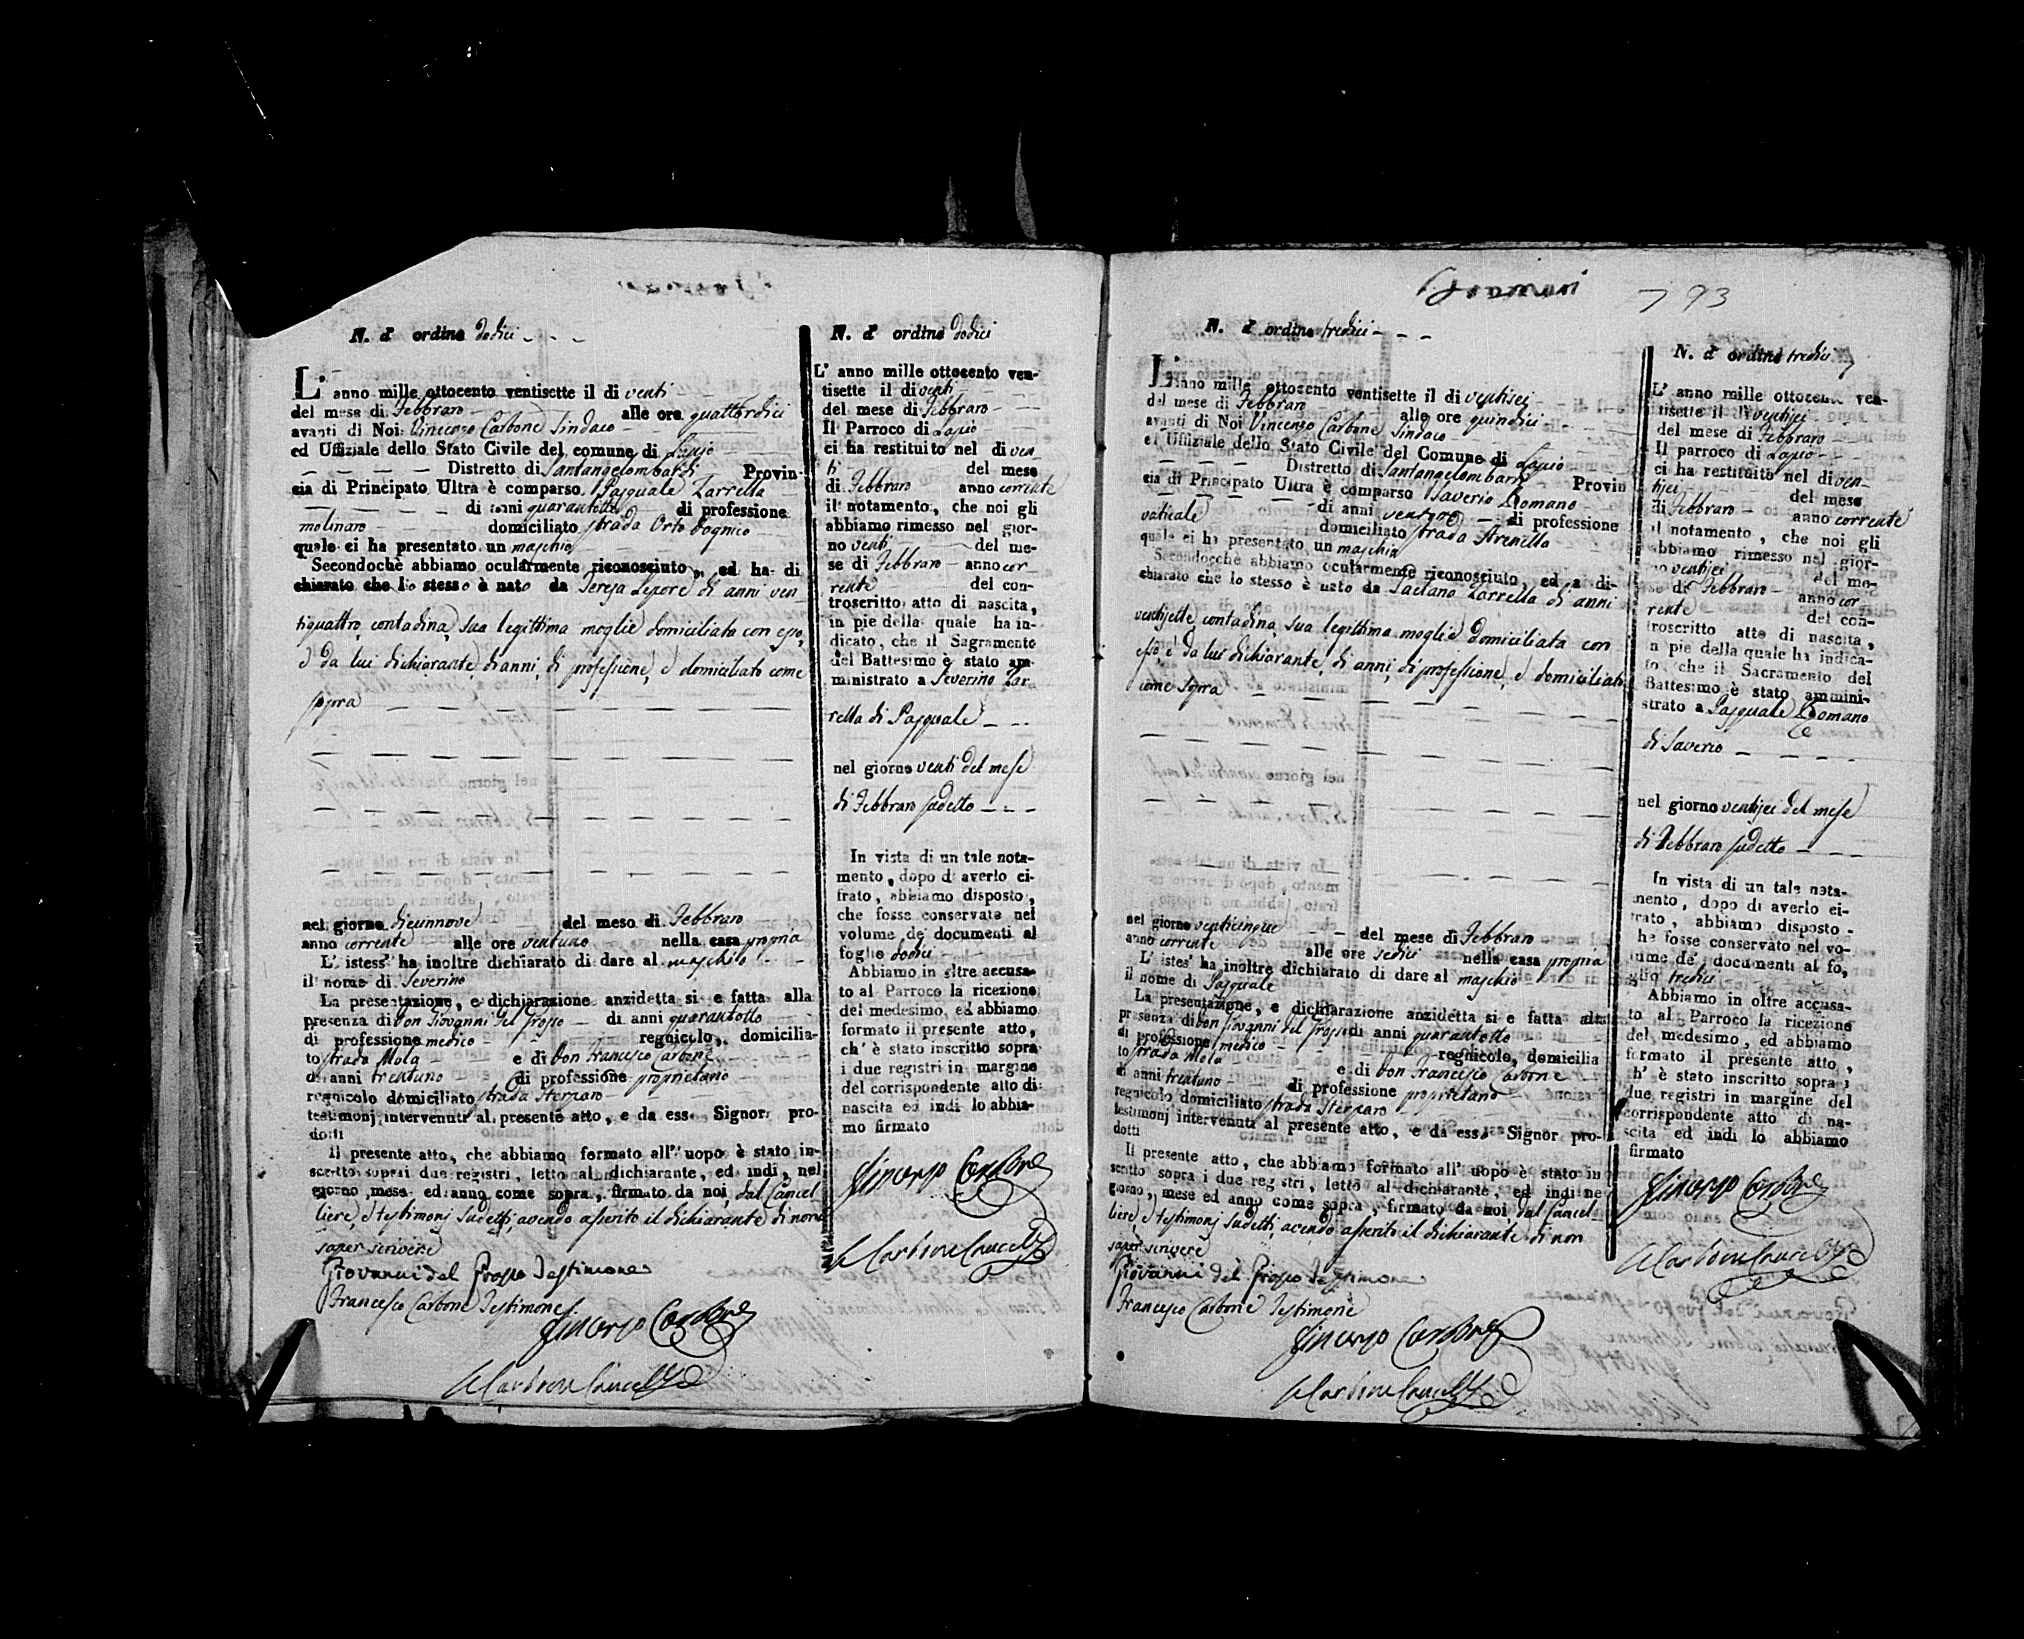 N. d' ordine dodici
L' anno mille ottocento ventisette il di venti
del mese di Febbraro alle ore quattordici
avanti di Noi Vincenzo Carbone Sindaco
ed Uffiziale dello Stato Civile del comune di Lapio
Distretto di Santangelombardi Provin-
cia di Principato Ultra è comparso Pasquale Zarrella
di anni quarantotto di professione
molinaro domiciliato strada Orto Dognico
quale ci ha presentato un maschio
Secondochè abbiamo ocularmente riconosciuto, ed ha di
chiarato che lo stesso è nato da Teresa Lepore di anni ven
tiquattro, contadina, sua legittima moglie domiciliata con esso,
e da lui dichiarante, di anni, di professione, e domiciliato come
sopra
nel giorno diciannove del mese di Febbraro
anno corrente alle ore ventuno nella casa propria
L' istess' ha inoltre dichiarato di dare al maschio
il nome di Severino
La presentazione, e dichiarazione anzidetta si e fatta alla
presenza di Don Giovanni del Grosso di anni quarantotto
di professione medico regnicolo, domicilia-
to strada Mola e di Don Francesco Carbone
di anni trentuno di professione proprietario
regnicolo domiciliato strada Sterparo
testimonj intervenuti al presente atto, e da ess. Signor pro-
dotti
Il presente atto, che abbiamo formato all' uopo è stato in-
scritto sopra i due registri, letto al dichiarante, ed indi, nel
giorno, mese ed anno come sopra, firmato da noi, dal Cancel
liere, e testimonj sudetti, avendo asserito il dichiarante di non
saper scrivere
Giovanni del Grosso Testimone
Francesco Carbone Testimone
Vincenzo Carbone
Carbone Cancell.
N. d' ordine dodici
L' anno mille ottocento ven-
tisette il di venti
del mese di Febbraro
Il Parroco di Lapio
ci ha restituito nel di ven
ti del mese
di Febbraro anno corrente
il notamento, che noi gli
abbiamo rimesso nel gior-
no venti del me-
se di Febbraro anno cor
rente del con-
troscritto atto di nascita,
in pie della quale ha in-
dicato, che il Sagramento
del Battesimo è stato am-
ministrato a Severino Zar
rella di Pasquale
nel giorno venti del mese
di Febbraro sudetto
In vista di un tale nota-
mento, dopo di averlo ci-
frato, abbiamo disposto,
che fosse conservato nel
volume de' documenti al
foglio dodici
Abbiamo in oltre accusa-
to al Parroco la ricezione
del medesimo, ed abbiamo
formato il presente atto,
ch' è stato inscritto sopra
i due registri in margine
del corrispondente atto di
nascita ed indi lo abbia-
mo firmato
Vincenzo Carbone
Carbone Cancell.
793
N. d' ordine tredici
L' anno mille ottocento ventisette il di ventisei
del mese di Febbraro alle ore quindici
avanti di Noi Vincenzo Carbone Sindaco
ed Uffiziale dello Stato Civile del Comune di Lapio
Distretto di Santangelombardi Provin
cia di Principato Ultra è comparso Saverio Romano
di anni ventuno di professione
vaticale domiciliato strada Arenella
quale ci ha presentato un maschio
Secondocchè abbiamo ocularmente riconosciuto, ed a di-
chiarato che lo stesso è nato da Gaetana Zarrella di anni
ventisette, contadina, sua legittima moglie domiciliata con
esso, e da lui dichiarante, di anni, di professione, e domiciliato
come sopra
nel giorno venticinque del mese di Febbraro
anno corrente alle ore sedici nella casa propria
L' istes' ha inoltre dichiarato di dare al maschio
il nome di Pasquale
La presentazione, e dichiarazione anzidetta si e fatta alla
presenza di Don Giovanni del Grosso di anni quarantotto
di professione medico regnicolo, domicilia
to strada Mola e di Don Francesco Carbone
di anni trentuno di professione proprietario
regnicolo domiciliato strada Sterparo
testimonj intervenuti al presente atto, e da ess. Signor pro-
dotti
Il presente atto, che abbiamo formato all' uopo è stato in
scritto sopra i due registri, letto al dichiarante, ed indi ne
giorno, mese ed anno come sopra, firmato da noi, dal Cancel-
liere, e testimonj sudetti, avendo asserito il dichiarante di non
saper scrivere
Giovanni del Grosso Testimone
Francesco Carbone Testimone
Vincenzo Carbone
Carbone Cancell.
N. d' ordine tredici
L' anno mille ottocento ven-
tisette il di ventisei
del mese di Febbraro
Il parroco di Lapio
ci ha restituito nel di ven-
tisei del mese
di Febbraro anno corrente
il notamento, che noi gli
abbiamo rimesso nel gior-
no ventisei del me-
se di Febbraro anno cor
rente del con-
troscritto atto di nascita,
in pie della quale ha indica-
to, che il Sacramento del
Battesimo è stato ammini-
strato a Pasquale Romano
di Saverio
nel giorno ventisei del mese
di Febbraro sudetto
In vista di un tale nota-
mento, dopo di averlo ci-
frato, abbiamo disposto
che fosse conservato nel vo-
lume de' documenti al fo,
glio tredici
Abbiamo in oltre accusa-
to al Parroco la ricezione
del medesimo, ed abbiamo
formato il presente atto,
ch' è stato inscritto sopra i
due registri in margine del
corrispondente atto di na-
scita ed indi lo abbiamo
firmato
Vincenzo Carbone
Carbone Cancell.